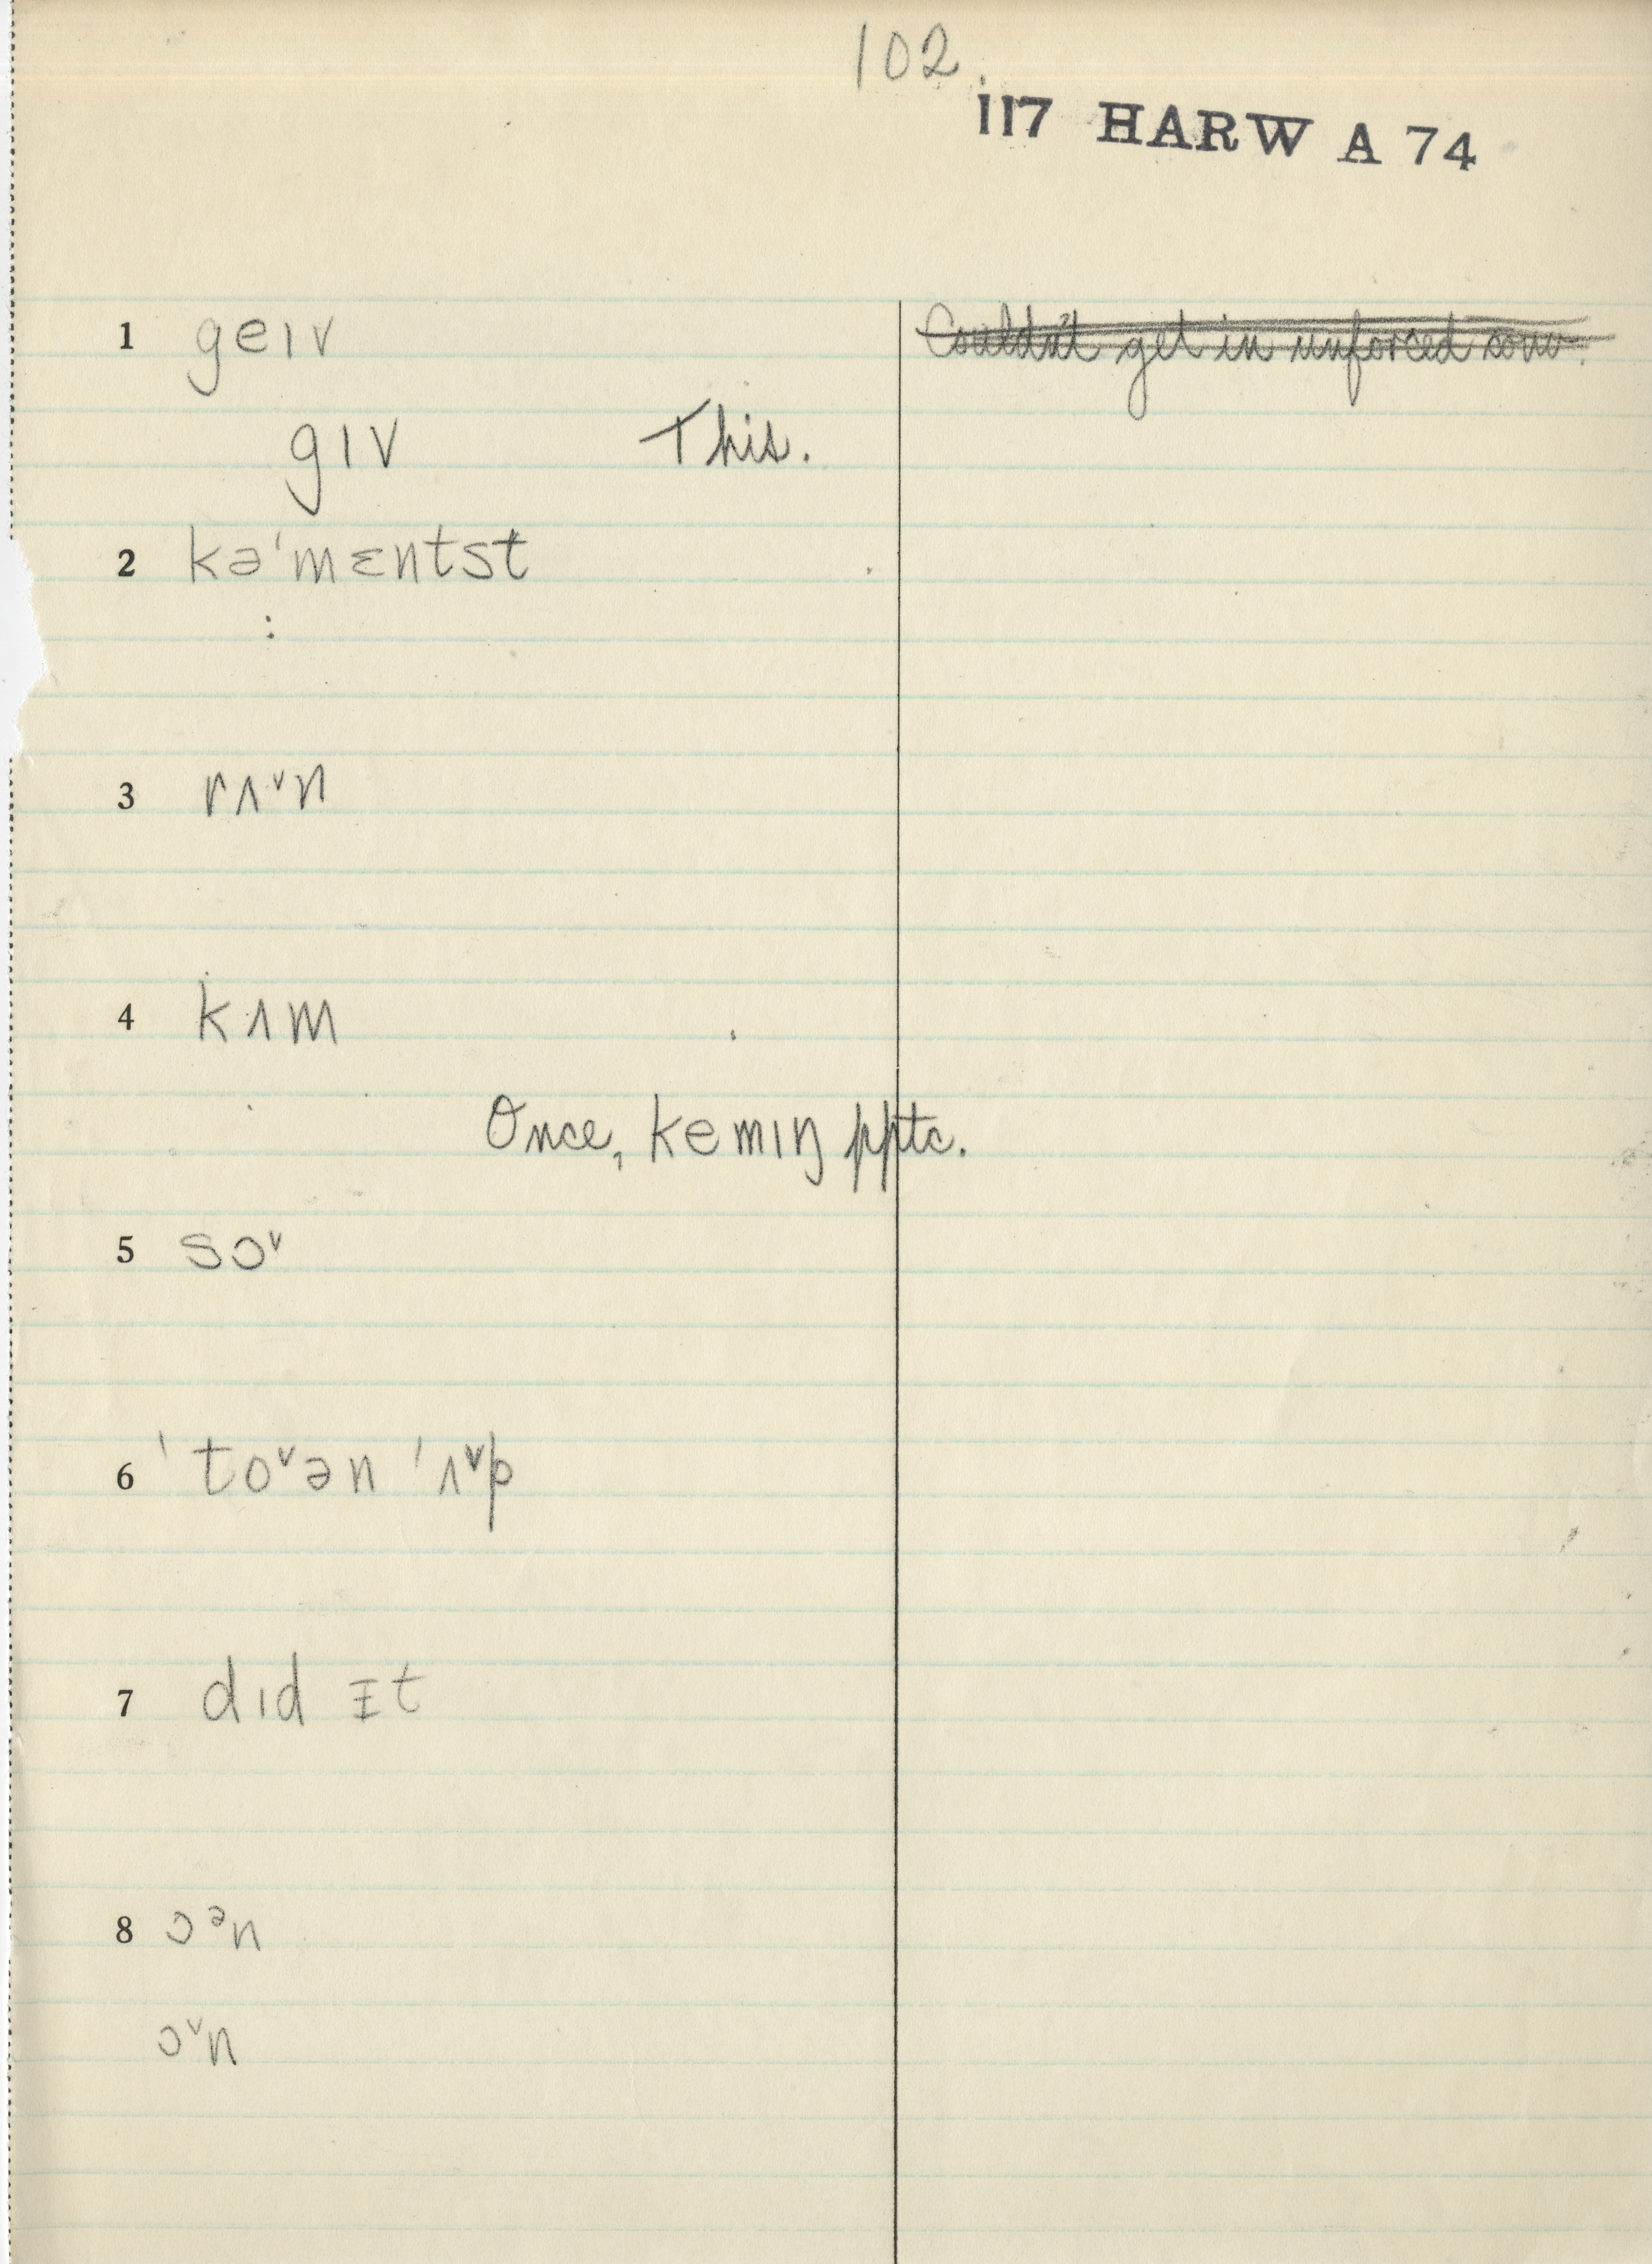 102.
117 HARW A 74
1 geɪv ~~Couldn't get in unforced conv.~~
gɪv This.
2 kəˈmɛntst
:
3 rʌ˅n
4 kʌm
Once, kemɪŋ pptc.
5 sɔ˅
6 ˈto˅ən ˈʌ˅p
7 dɪd ɪt
8 ɔᵊn
ɔ˅n